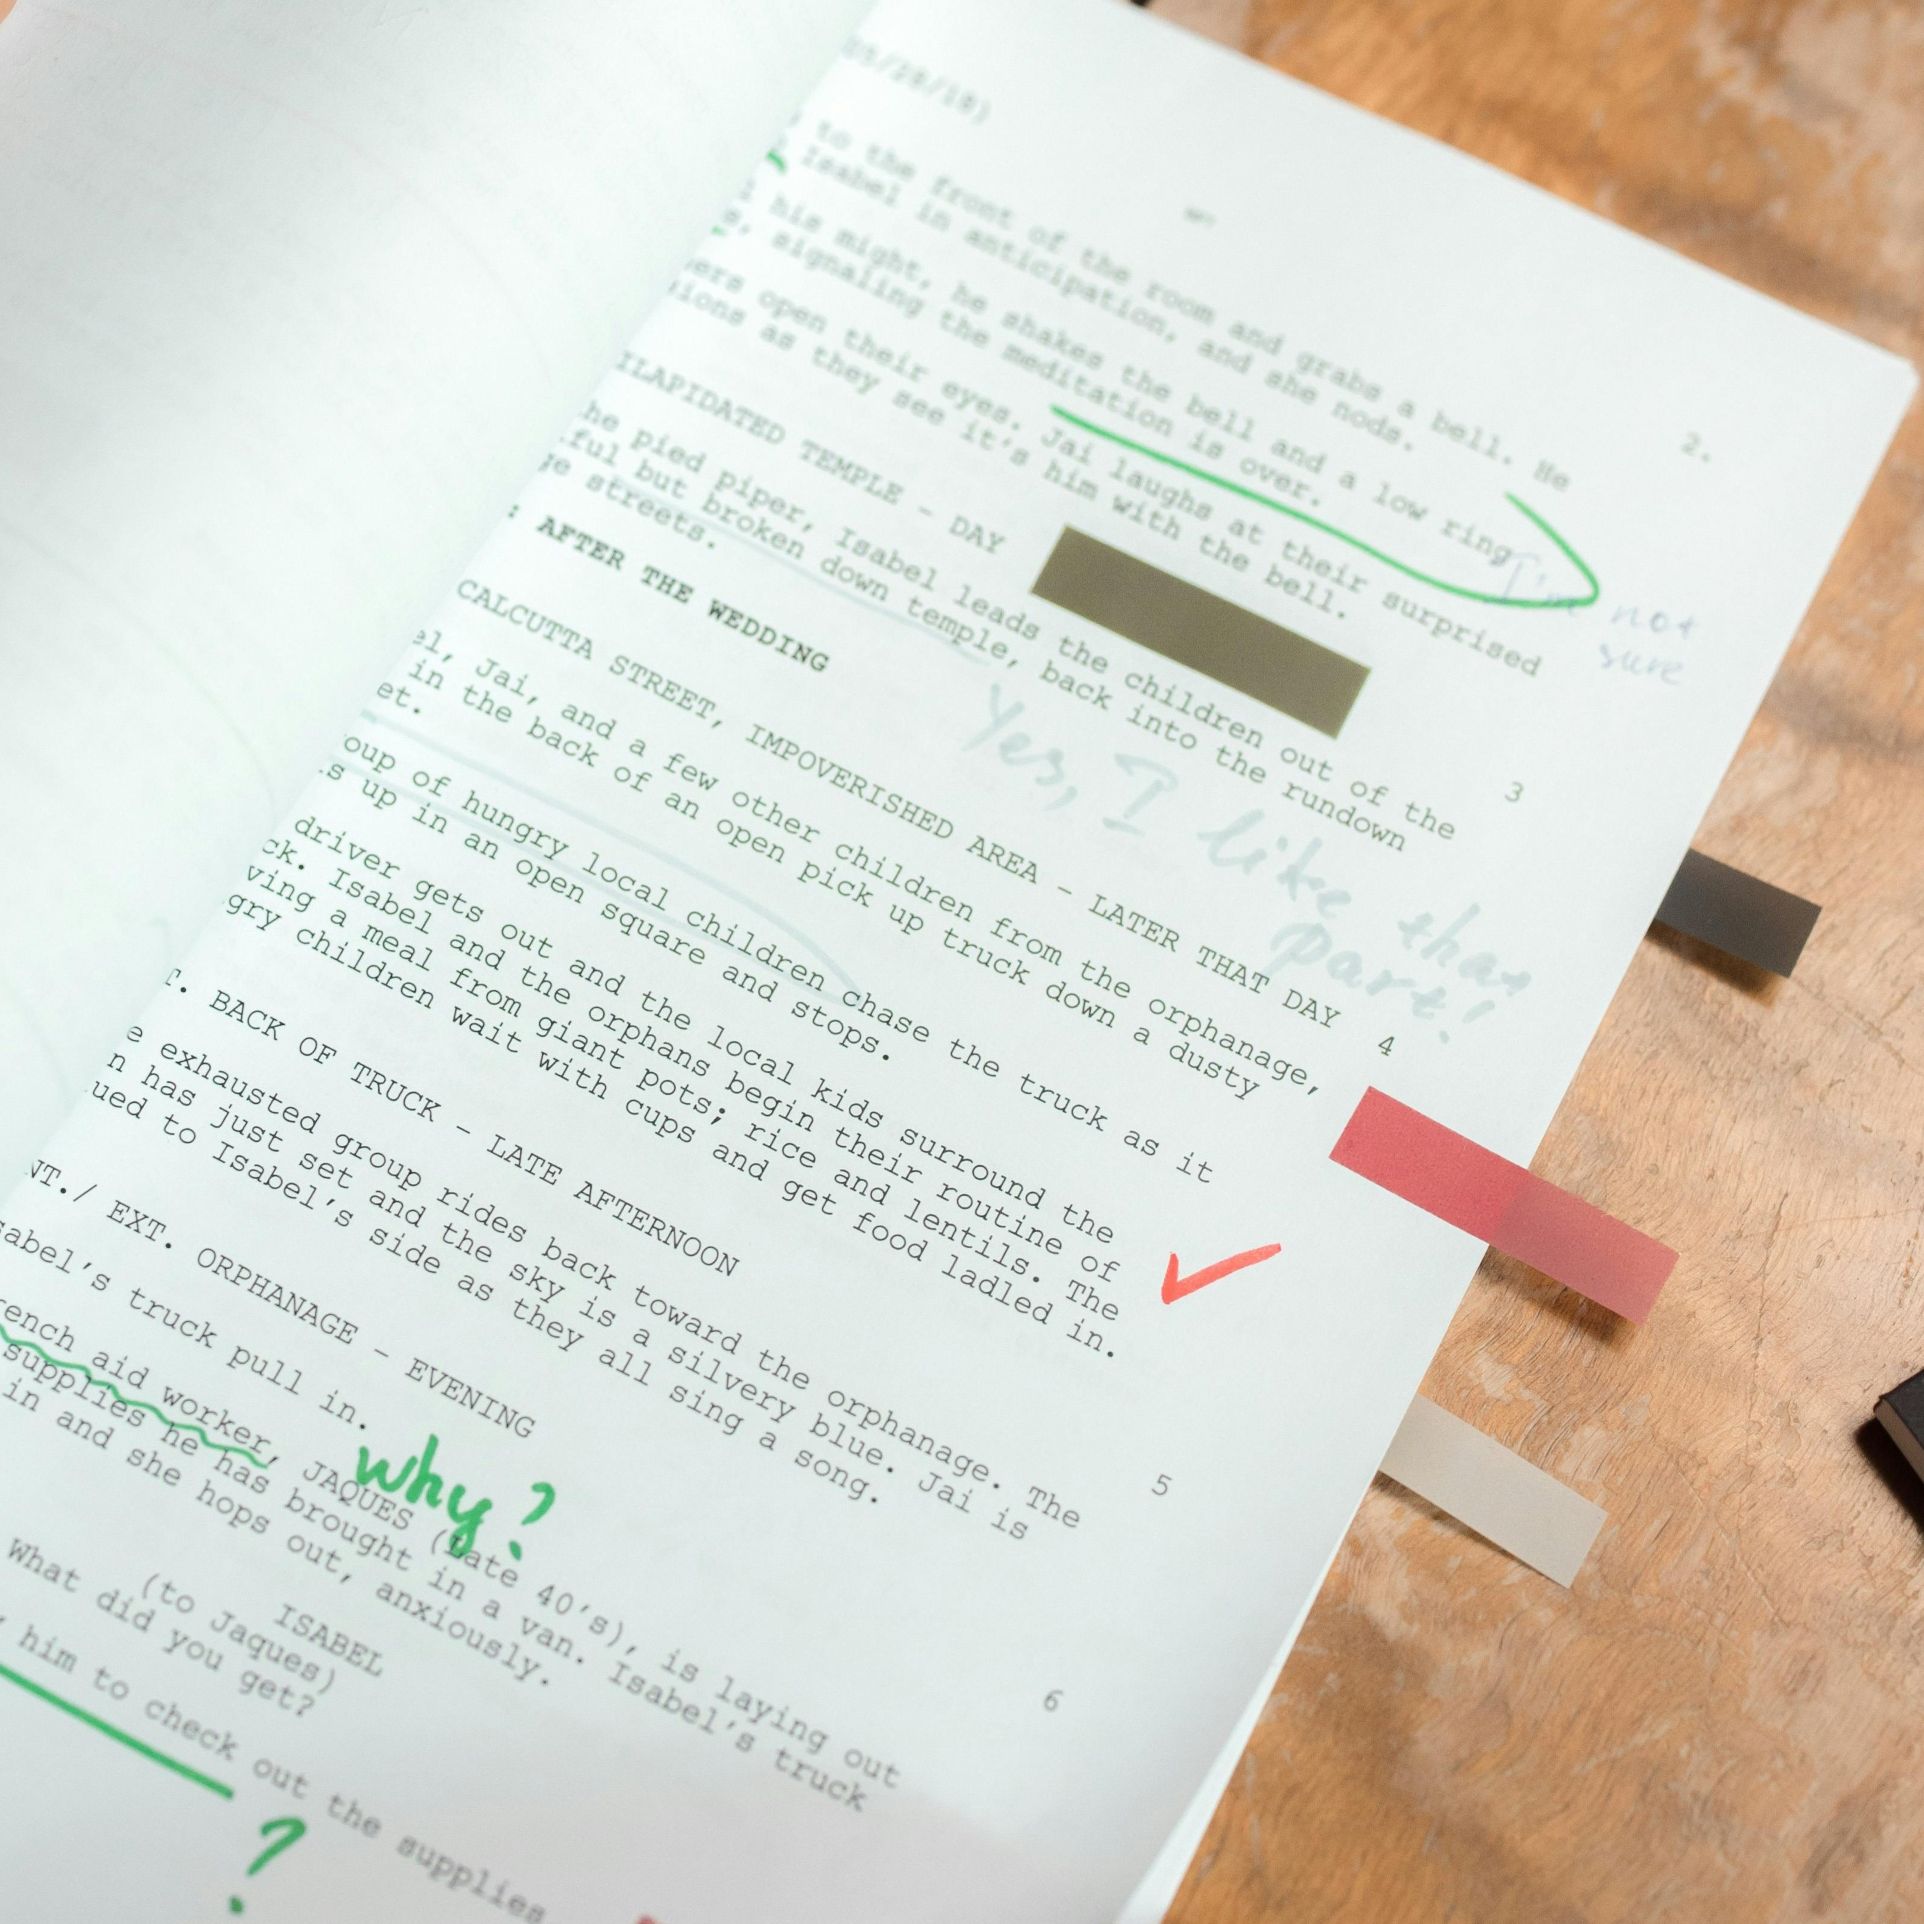 /28/18)
2.
to the front of the room and grabs a bell. He
Isabel in anticipation, and she nods.
his might, he shakes the bell and a low ring
signaling the meditation is over.
ers open their eyes. Jai laughs at their surprised
sions as they see it's him with the bell.
I'm not
sure
ILAPIDATED TEMPLE - DAY
3
he pied piper, Isabel leads the children out of the
ful but broken down temple, back into the rundown
ge streets.
Yes, I like that
part!
: AFTER THE WEDDING
CALCUTTA STREET, IMPOVERISHED AREA - LATER THAT DAY
4
el, Jai, and a few other children from the orphanage,
in the back of an open pick up truck down a dusty
et.
oup of hungry local children chase the truck as it
s up in an open square and stops.
driver gets out and the local kids surround the
ck. Isabel and the orphans begin their routine of
ving a meal from giant pots; rice and lentils. The
gry children wait with cups and get food ladled in.
T. BACK OF TRUCK - LATE AFTERNOON
5
e exhausted group rides back toward the orphanage. The
n has just set and the sky is a silvery blue. Jai is
ued to Isabel's side as they all sing a song.
NT./ EXT. ORPHANAGE - EVENING
6
sabel's truck pull in.
why?
rench aid worker, JAQUES (Late 40's), is laying out
supplies he has brought in a van. Isabel's truck
in and she hops out, anxiously.
ISABEL
(to Jaques)
What did you get?
him to check out the supplies
?